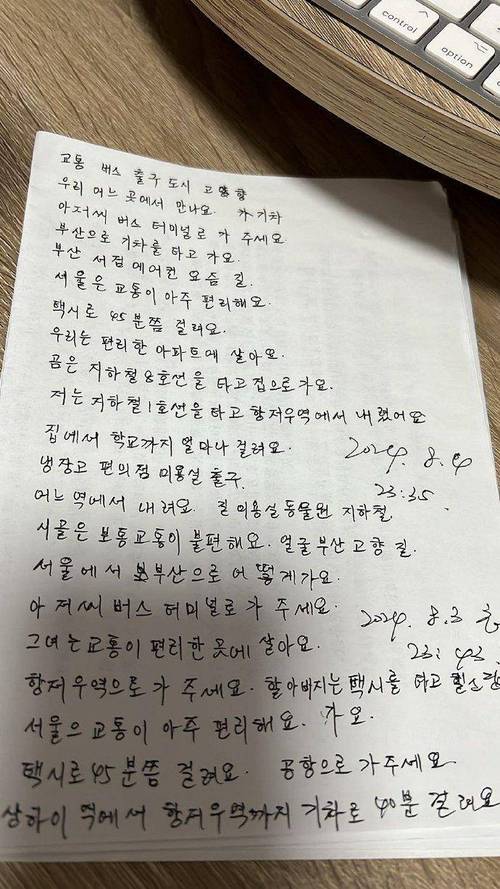 control
option
교통 버스 출구 도시 고향
우리 어느 곳에서 만나요. 기차
아저씨 버스 터미널로 가 주세요
부산으로 기차를 타고 가요.
부산 서점 에어컨 요즘 길.
서울은 교통이 아주 편리해요.
택시로 45분쯤 걸려요.
우리는 편리한 아파트에 살아요.
곰은 지하철 8호선을 타고 집으로 가요.
저는 지하철 1호선을 타고 항저우역에서 내렸어요
집에서 학교까지 얼마나 걸려요.
2024. 8. 4
냉장고 편의점 미용실 출구.
23:35
어느 역에서 내려요. 길 미용실 동물원 지하철.
시골은 보통 교통이 불편해요. 얼굴 부산 고향 길.
서울에서 부산으로 어떻게 가요.
아저씨 버스 터미널로 가 주세요.
2024. 8.3
그녀는 교통이 편리한 곳에 살아요.
23:43
항저우역으로 가 주세요. 할아버지는 택시를 타고
서울으 교통이 아주 편리해요. 가요.
택시로 45분쯤 걸려요. 공항으로 가주세요
상하이 역에서 항저우역까지 기차로 40분 걸려요